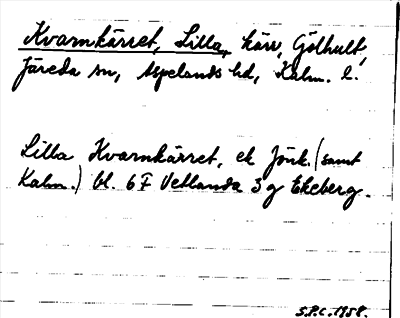 Kvarnkärret, Lilla, kärr, Gölhult,
Järeda sn, Aspelands hd, Kalm. l.
Lilla Kvarnkärret, ek Jönk. (samt
Kalm.) bl. 6F Vetlanda 3g Ekeberg.
S.P.C. 1958.